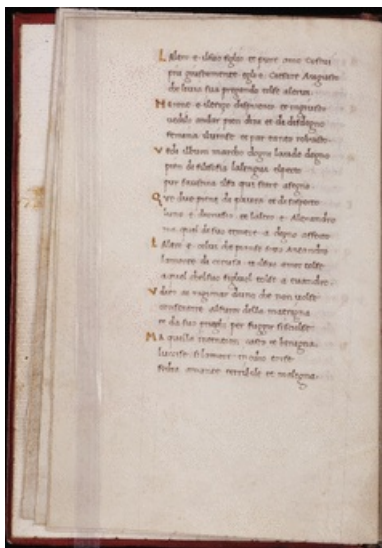 L altro e ilsuo figlio et pure amo Costui
piu giustamente egli e Cesare Augusto
che liuia sua pregando tolse altrui.
N erone e ilterzo dispietato et ingiusto
uedilo andar pien dira et di disdegno
femina iluinse et par tanto robusto.
V edi ilbuon marcho dogni laude degno
pien di filosofia lalengua elpecto
pur faustina ilfa qui stare asegno.
Q ue duo pieni di paura et disospecto
luno e dionisio et laltro e Alexandro
ma quel di suo temere a degno effecto
L altro e colui che pianse socto Antandro
lamorte di creusa et ilsuo amor tolse
aquel chelsuo figluol tolse a euandro.
V dito ai ragionar duno che non uolse
consentire alfuror della matrigna
et da suo preghi per fuggir sisciolse
M a quella intention casta et benigna
luccise silamore in odio torse
fedra amante terribile et maligna.